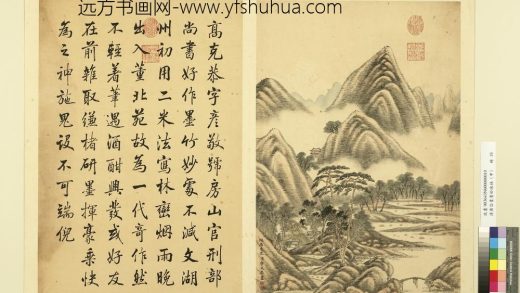 远方书画网-www.yfshuhua.com
高克恭字彦敬號房山官刑部
尚書好作墨竹妙處不減文湖
州初用二米法寫林巒烟雨晚
出入董北苑故為一代奇作然
不輕著筆遇酒酣興發或好友
在前雜取縑楮研墨揮毫乘快
為之神施鬼設不可端倪